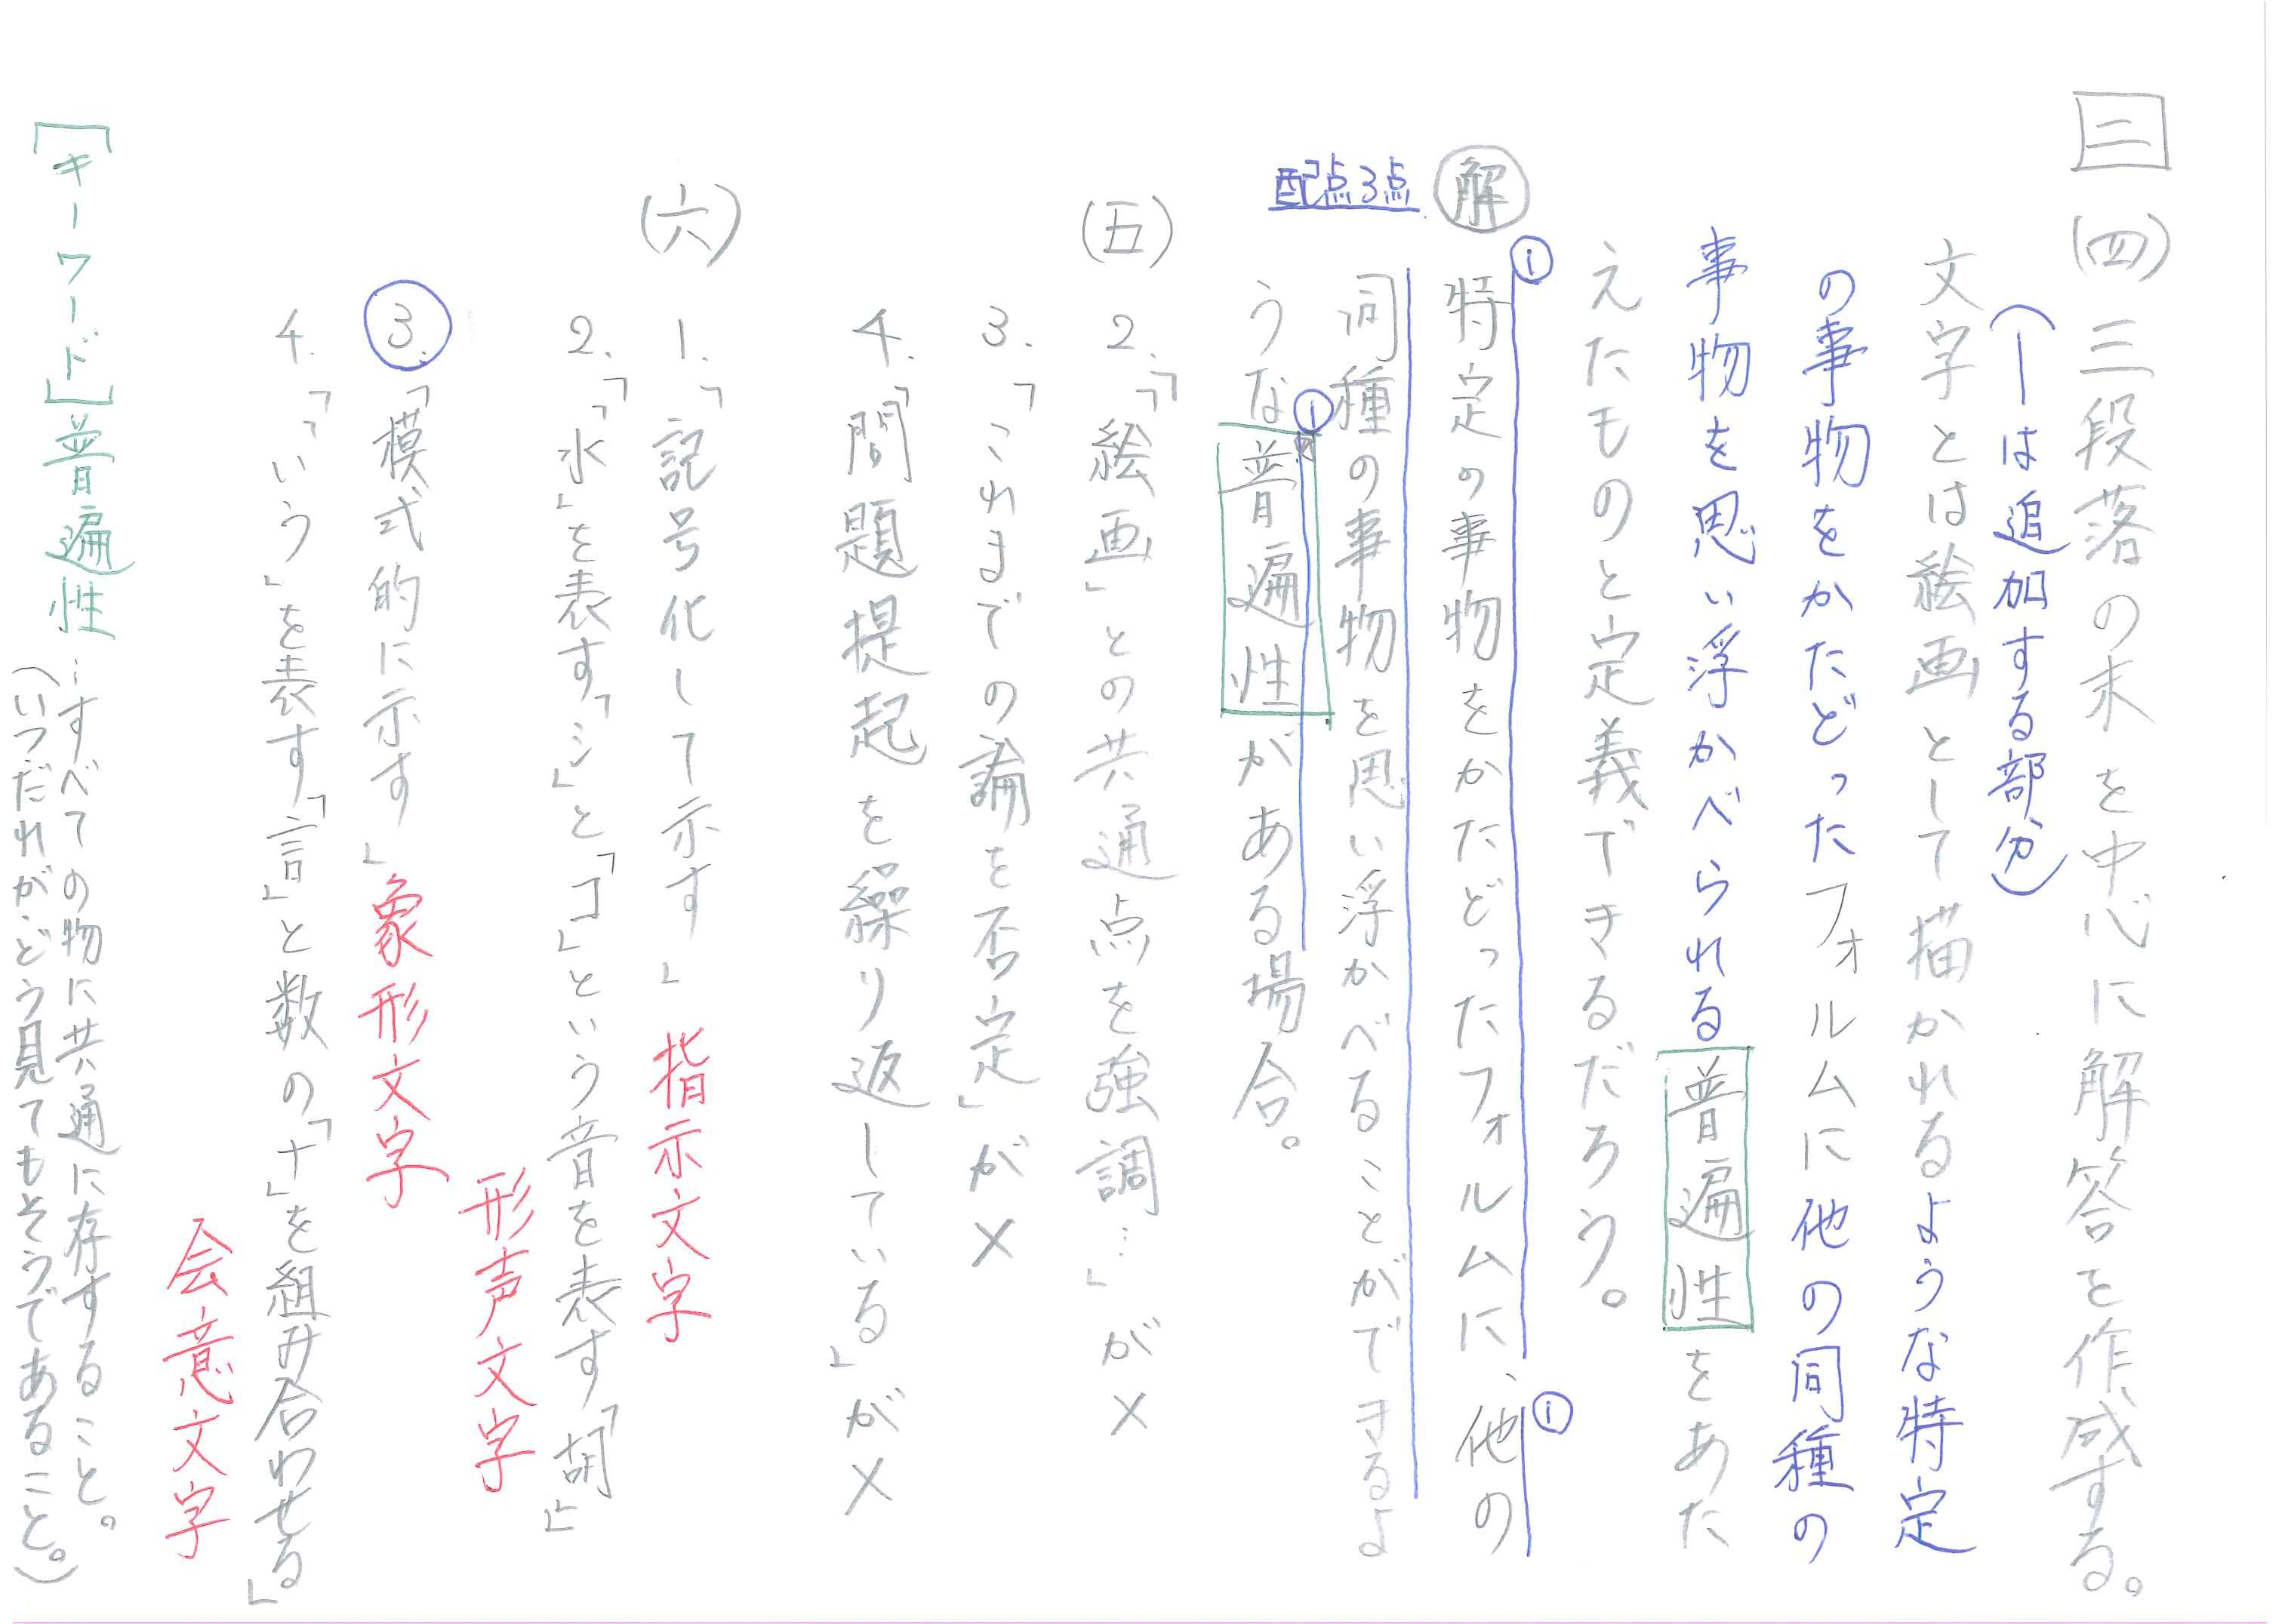 三 (四)三段落の末を中心に解答を作成する。
(―は追加する部分)
文字とは絵画として描かれるような特定
の事物をかたどったフォルムに他の同種の
事物を思い浮かべられる普遍性をあた
えたものと定義できるだろう。
解 ①特定の事物をかたどったフォルムに、①他の
配点3点
同種の事物を思い浮かべることができるよ
うな①普遍性がある場合。
(五) 2.「「絵画」との共通点を強調…」が×
3.「これまでの論を否定」が×
4.「問題提起を繰り返している」が×
(六) 1.「記号化して示す」 指示文字
2.「「水」を表す「シ」と「コ」という音を表す「胡」」
形声文字
3.「模式的に示す」象形文字
4.「「いう」を表す「言」と数の「十」を組み合わせる」
会意文字
[キーワード]普遍性…すべての物に共通に存すること。
(いつだれがどう見てもそうであること。)